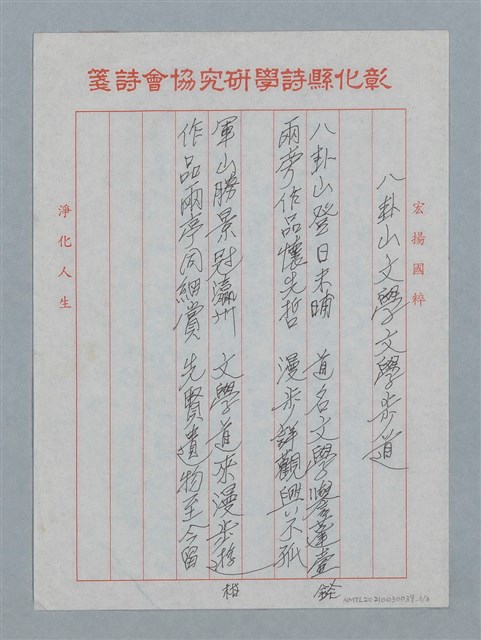 彰化縣詩學研究協會詩箋
宏揚國粹
八卦山文學文學步道
八卦山登日未晡　道名文學譽蓬壺
兩旁作品懷先哲　漫步詳觀興不孤
銓
軍山勝景冠瀛州　文學道來漫步游
作品兩亭同細賞　先賢遺物至今留
淨化人生